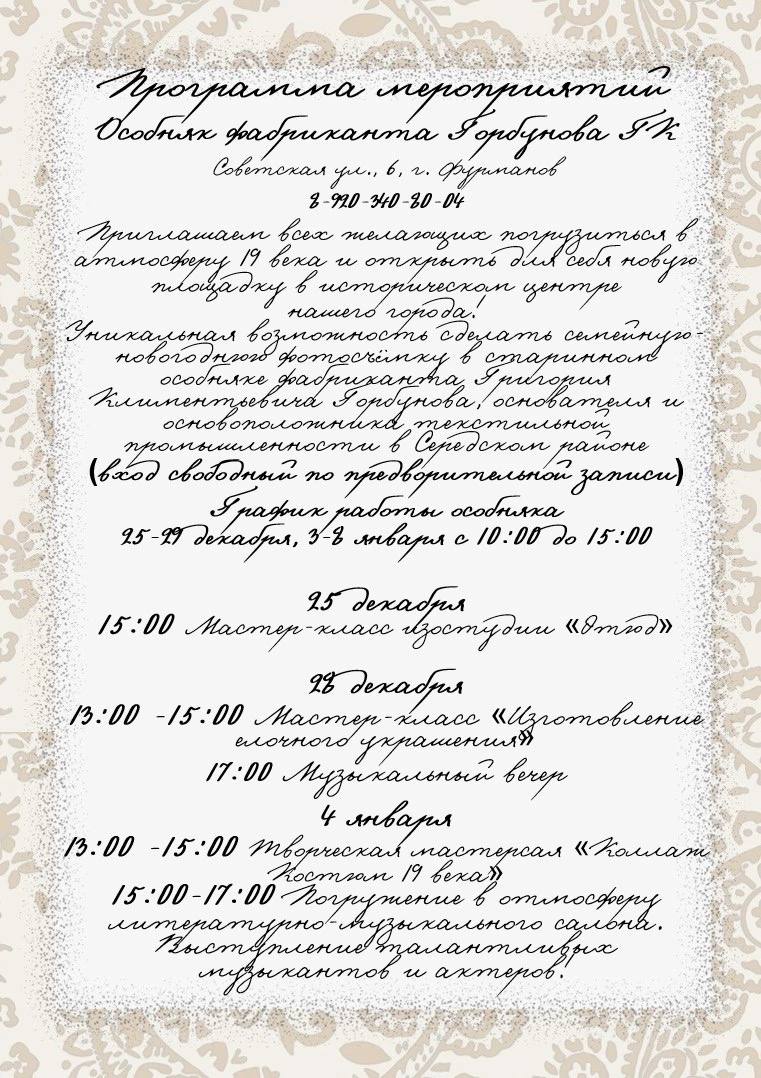 Программа мероприятий
Особняк фабриканта Горбунова ГК
Советская ул., 6, г. Фурманов
8-920-340-80-04
Приглашаем всех желающих погрузиться в
атмосферу 19 века и открыть для себя новую
площадку в историческом центре
нашего города!
Уникальная возможность сделать семейную-
новогоднюю фотосъёмку в старинном
особняке фабриканта Григория
Климентьевича Горбунова, основателя и
основоположника текстильной
промышленности в Середском районе
(вход свободный по предворительной записи)
График работы особняка
25-29 декабря, 3-8 января с 10:00 до 15:00
25 декабря
15:00 Мастер-класс изостудии «Этюд»
28 декабря
13:00 -15:00 Мастер-класс «Изготовление
елочного украшения»
17:00 Музыкальный вечер
4 января
13:00 -15:00 Творческая мастерсая «Коллаж
Костюм 19 века»
15:00-17:00 Погружение в отмосферу
литературно-музыкального салона.
Выступление талантливых
музыкантов и актеров!